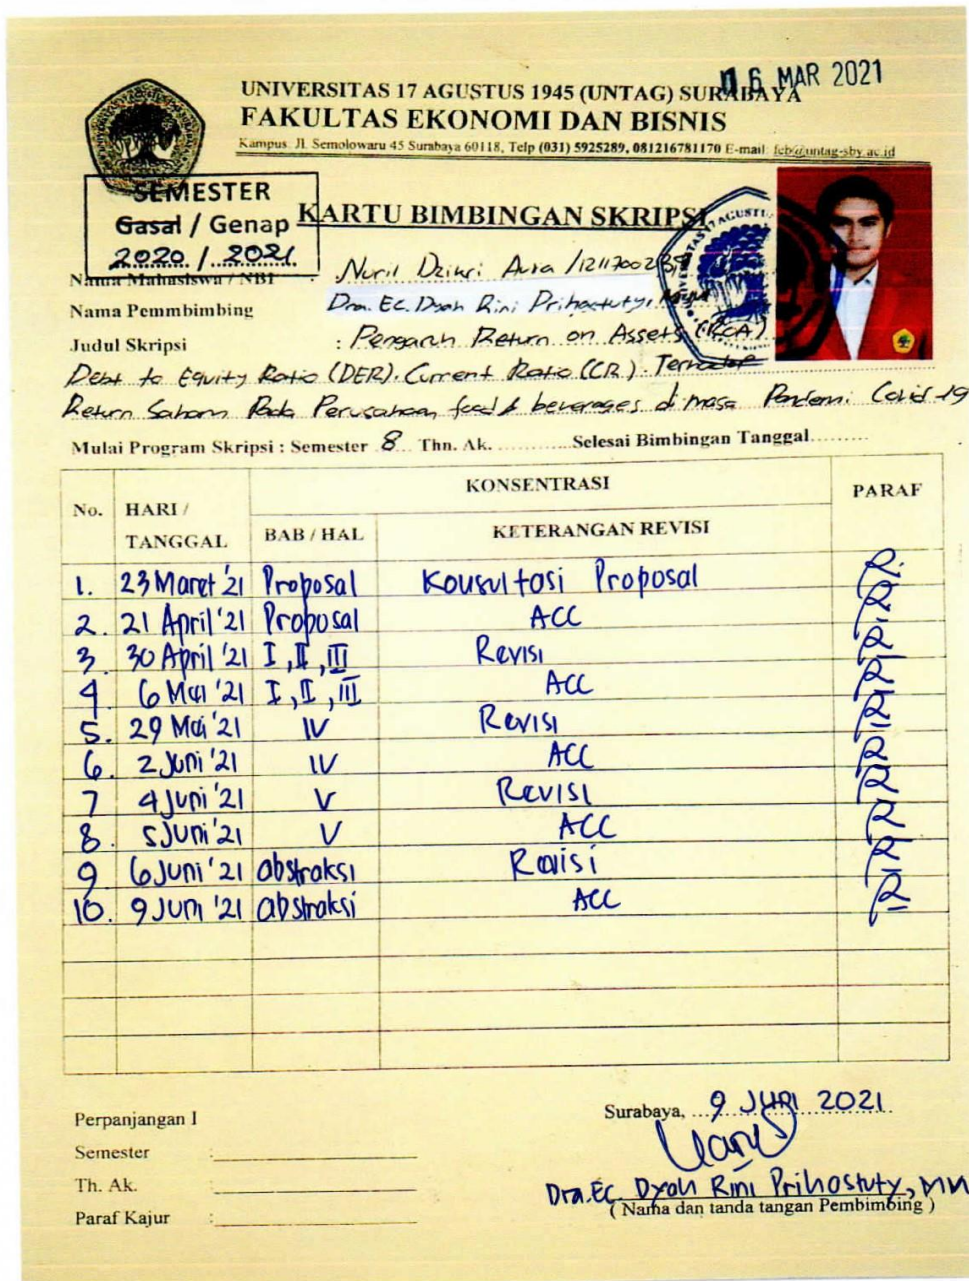 16 MAR 2021
UNIVERSITAS 17 AGUSTUS 1945 (UNTAG) SURABAYA
FAKULTAS EKONOMI DAN BISNIS
Kampus Jl. Semolowaru 45 Surabaya 60118, Telp (031) 5925289, 081216781170 E-mail: feb@untag-sby.ac.id
SEMESTER
Gasal / Genap
2020 / 2021
KARTU BIMBINGAN SKRIPSI
Nama Mahasiswa / NBI : Nuril Dzikri
Nama Pemmbimbing Dra. Ec. Dyah Rini Prihastuty,
Judul Skripsi : Pengaruh Return on Assets (ROA)
Debt to Equity Ratio (DER). Current Ratio (CR). Terhadap
Return Saham Pada Perusahaan food & beverages di masa Pandemi Covid-19
Mulai Program Skripsi : Semester 8 Thn. Ak. ............ Selesai Bimbingan Tanggal.........
No. HARI / TANGGAL KONSENTRASI PARAF
BAB / HAL KETERANGAN REVISI
1. 23 Maret '21 Proposal Konsultasi Proposal
2. 21 April '21 Proposal ACC
3 30 April '21 I, II, III Revisi
4 6 Mei '21 I, II, III ACC
5. 29 Mei '21 IV Revisi
6. 2 Juni '21 IV ACC
7 4 Juni '21 V Revisi
8. 5 Juni '21 V ACC
9 6 Juni '21 abstraksi Revisi
10. 9 Juni '21 abstraksi ACC
Perpanjangan I
Semester :
Th. Ak. :
Paraf Kajur :
Surabaya, 9 JUNI 2021
Dra. Ec. Dyah Rini Prihastuty, MM
( Nama dan tanda tangan Pembimbing )